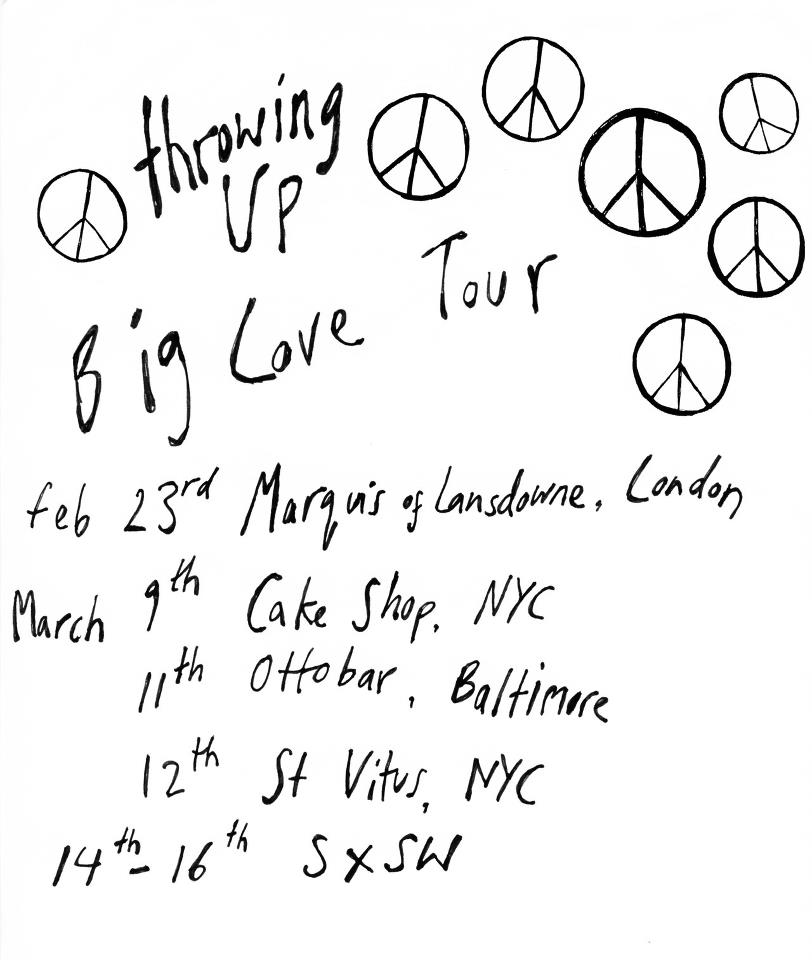 throwing
UP
Big Love Tour
feb 23rd Marquis of Lansdowne, London
March 9th Cake Shop, NYC
11th Ottobar, Baltimore
12th St Vitus, NYC
14th - 16th SxSW